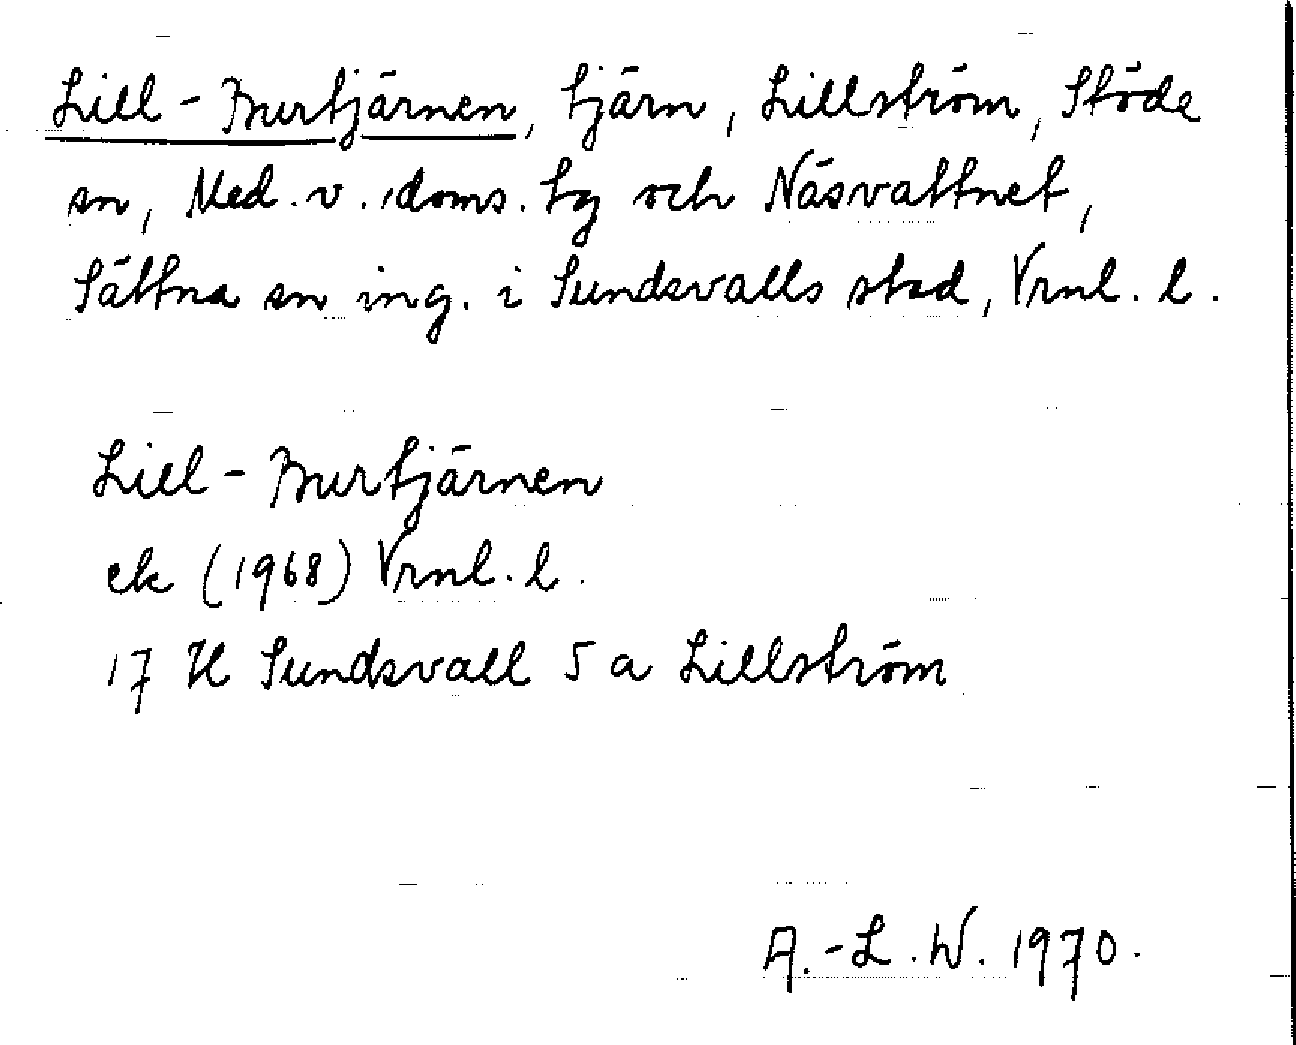 Lill-Burtjärnen, tjärn, Lillström, Stöde
sn, Med. v. doms. tg och Näsvattnet,
Sättna sn ing. i Sundsvalls stad, Vrnl. l.
Lill-Burtjärnen
ek (1968) Vrnl. l.
17 H Sundsvall 5 a Lillström
A.-L. W. 1970.